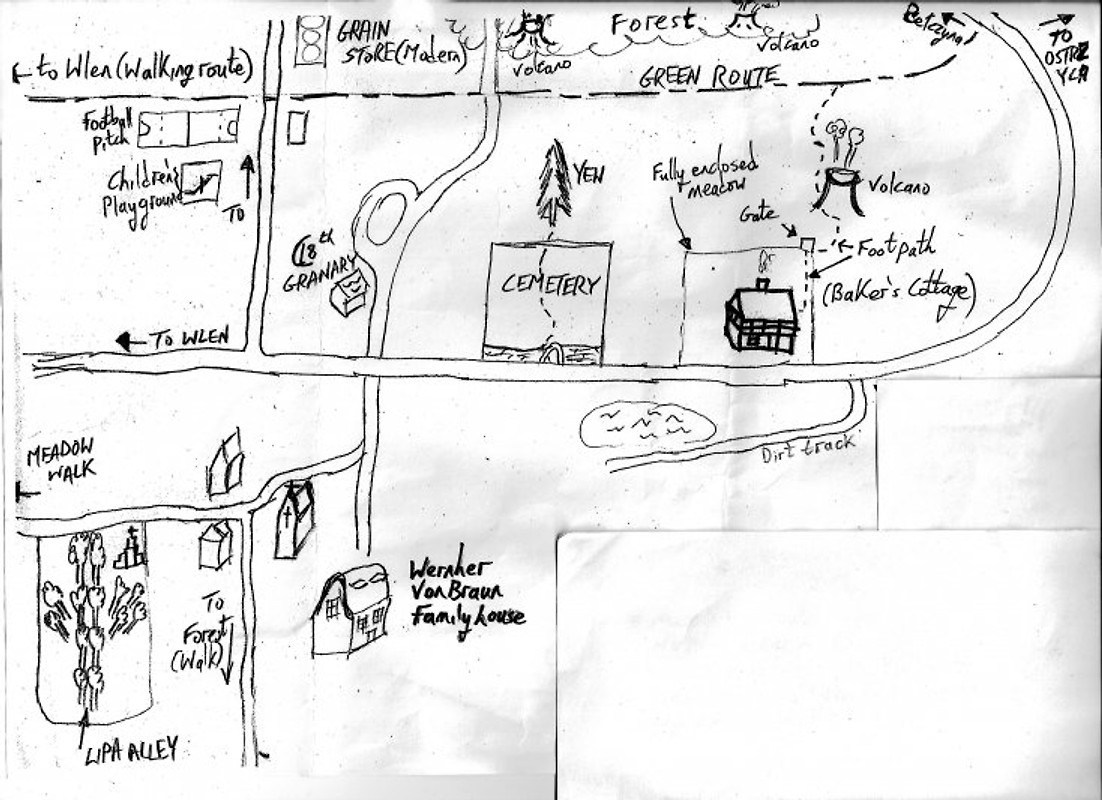 GRAIN
STORE (Modern)
Forest
Volcano
Volcano
TO
OSTRZ
YCA
← to Wlen (Walking route)
GREEN ROUTE
Football
pitch
Children's
Playground
TO
YEW
Fully enclosed
meadow
Volcano
Gate
Footpath
(Baker's Cottage)
C18th
GRANARY
CEMETERY
TO WLEN
MEADOW
WALK
Dirt track
Wernher
Von Braun
Family house
To
Forest
(Walk)
LIPA ALLEY